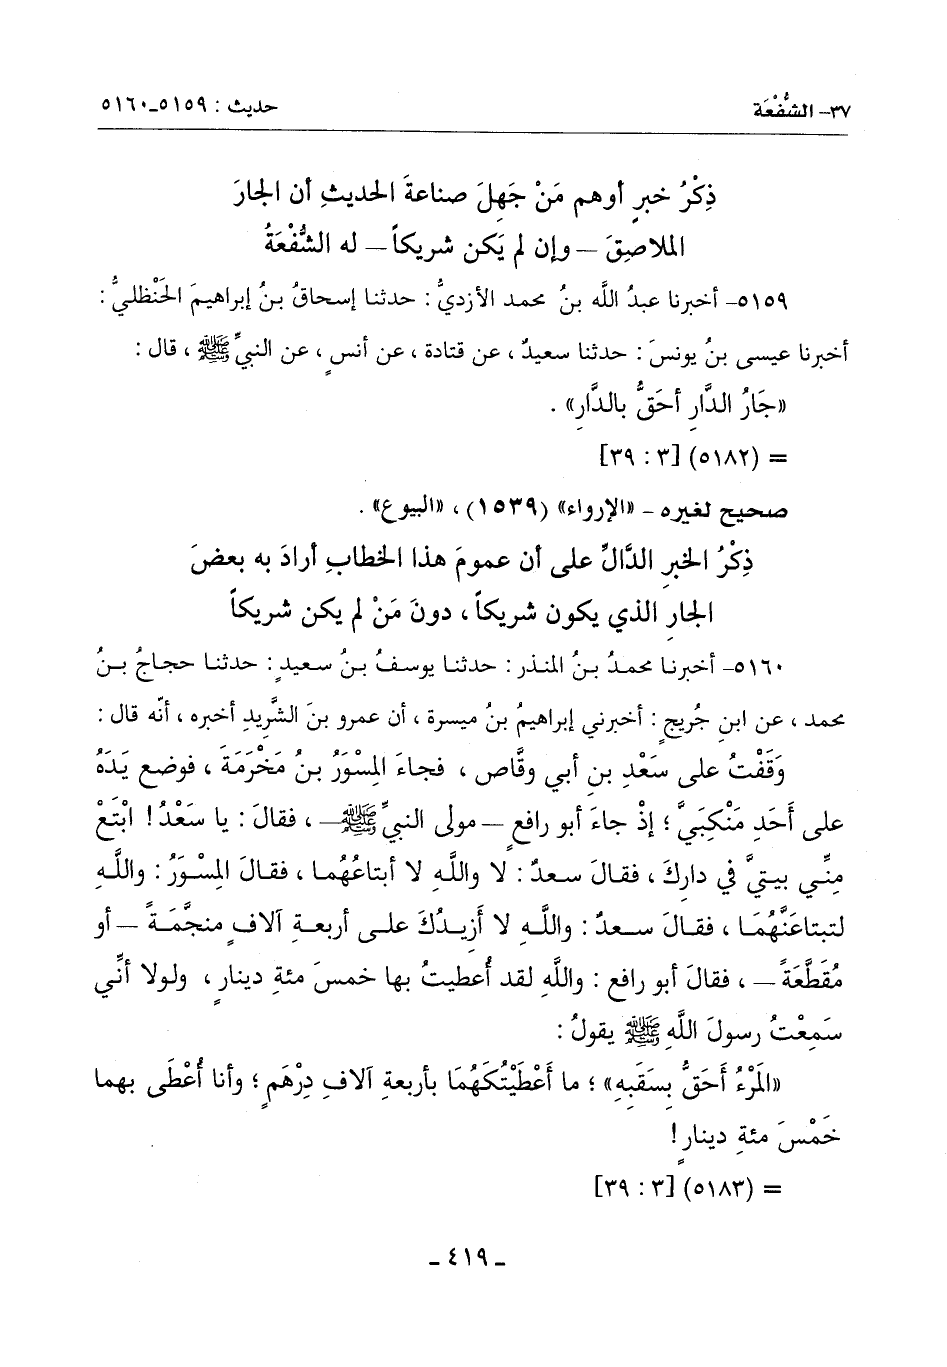 ٣٧- الشُّفْعَة حديث : ٥١٥٩-٥١٦٠
ذِكْرُ خبرٍ أوهم مَنْ جَهِلَ صناعةَ الحديثِ أن الجارَ
الملاصِقَ – وإن لم يَكن شريكاً – له الشُّفْعَةُ
٥١٥٩- أخبرنا عبدُ اللَّه بنُ محمد الأزديُّ : حدثنا إسحاقُ بنُ إبراهيمَ الحَنْظليُّ :
أخبرنا عيسى بنُ يونسَ : حدثنا سعيدٌ ، عن قتادة ، عن أنسٍ ، عن النبيِّ ﷺ ، قال :
«جَارُ الدَّارِ أحَقُّ بالدَّارِ» .
= (٥١٨٢) [٣ : ٣٩]
صحيح لغيره - «الإرواء» (١٥٣٩) ، «البيوع» .
ذِكْرُ الخبرِ الدَّالِّ على أن عمومَ هذا الخطابِ أرادَ به بعضَ
الجارِ الذي يكون شريكاً ، دونَ مَنْ لم يكن شريكاً
٥١٦٠- أخبرنا محمدُ بنُ المنذر : حدثنا يوسفُ بنُ سعيدٍ : حدثنا حجاجُ بنُ
محمد ، عن ابنِ جُريجٍ : أخبرني إبراهيمُ بنُ ميسرة ، أن عمرو بنَ الشَّريدِ أخبره ، أنّه قال :
وَقَفْتُ على سَعْدِ بنِ أبي وقَّاص ، فجاءَ المِسْوَرُ بنُ مَخْرَمَةَ ، فوضع يَدَهُ
على أَحَدِ مَنْكِبَيَّ ؛ إذْ جاءَ أبو رافعٍ – مولى النبيِّ ﷺ – ، فقالَ : يا سَعْدُ ! ابْتَعْ
مِنِّي بيتيَّ في دارِكَ ، فقالَ سعدٌ : لا واللَّهِ لا أبتاعُهُما ، فقالَ المِسْوَرُ : واللَّهِ
لتبتاعَنَّهُمَا ، فقالَ سعدٌ : واللَّهِ لا أَزيدُكَ على أربعةِ آلافٍ منجَّمَةً – أو
مُقَطَّعَةً – ، فقالَ أبو رافع : واللَّهِ لقد أُعطيتُ بها خمسَ مئةِ دينارٍ ، ولولا أنِّي
سَمِعْتُ رسولَ اللَّهِ ﷺ يقولُ :
«المَرْءُ أَحَقُّ بِسَقَبِهِ» ؛ ما أَعْطَيْتُكَهُمَا بأربعةِ آلافِ دِرْهَمٍ ؛ وأنا أُعْطَى بهما
خَمْسَ مئةِ دينارٍ !
= (٥١٨٣) [٣ : ٣٩]
- ٤١٩ -